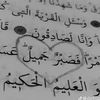 وَسْئَلِ الْقَرْيَةَ الَّتِي
وَإِنَّا لَصَادِقُونَ
فَصَبْرٌ جَمِيلٌ
هُوَ الْعَلِيمُ الْحَكِيمُ